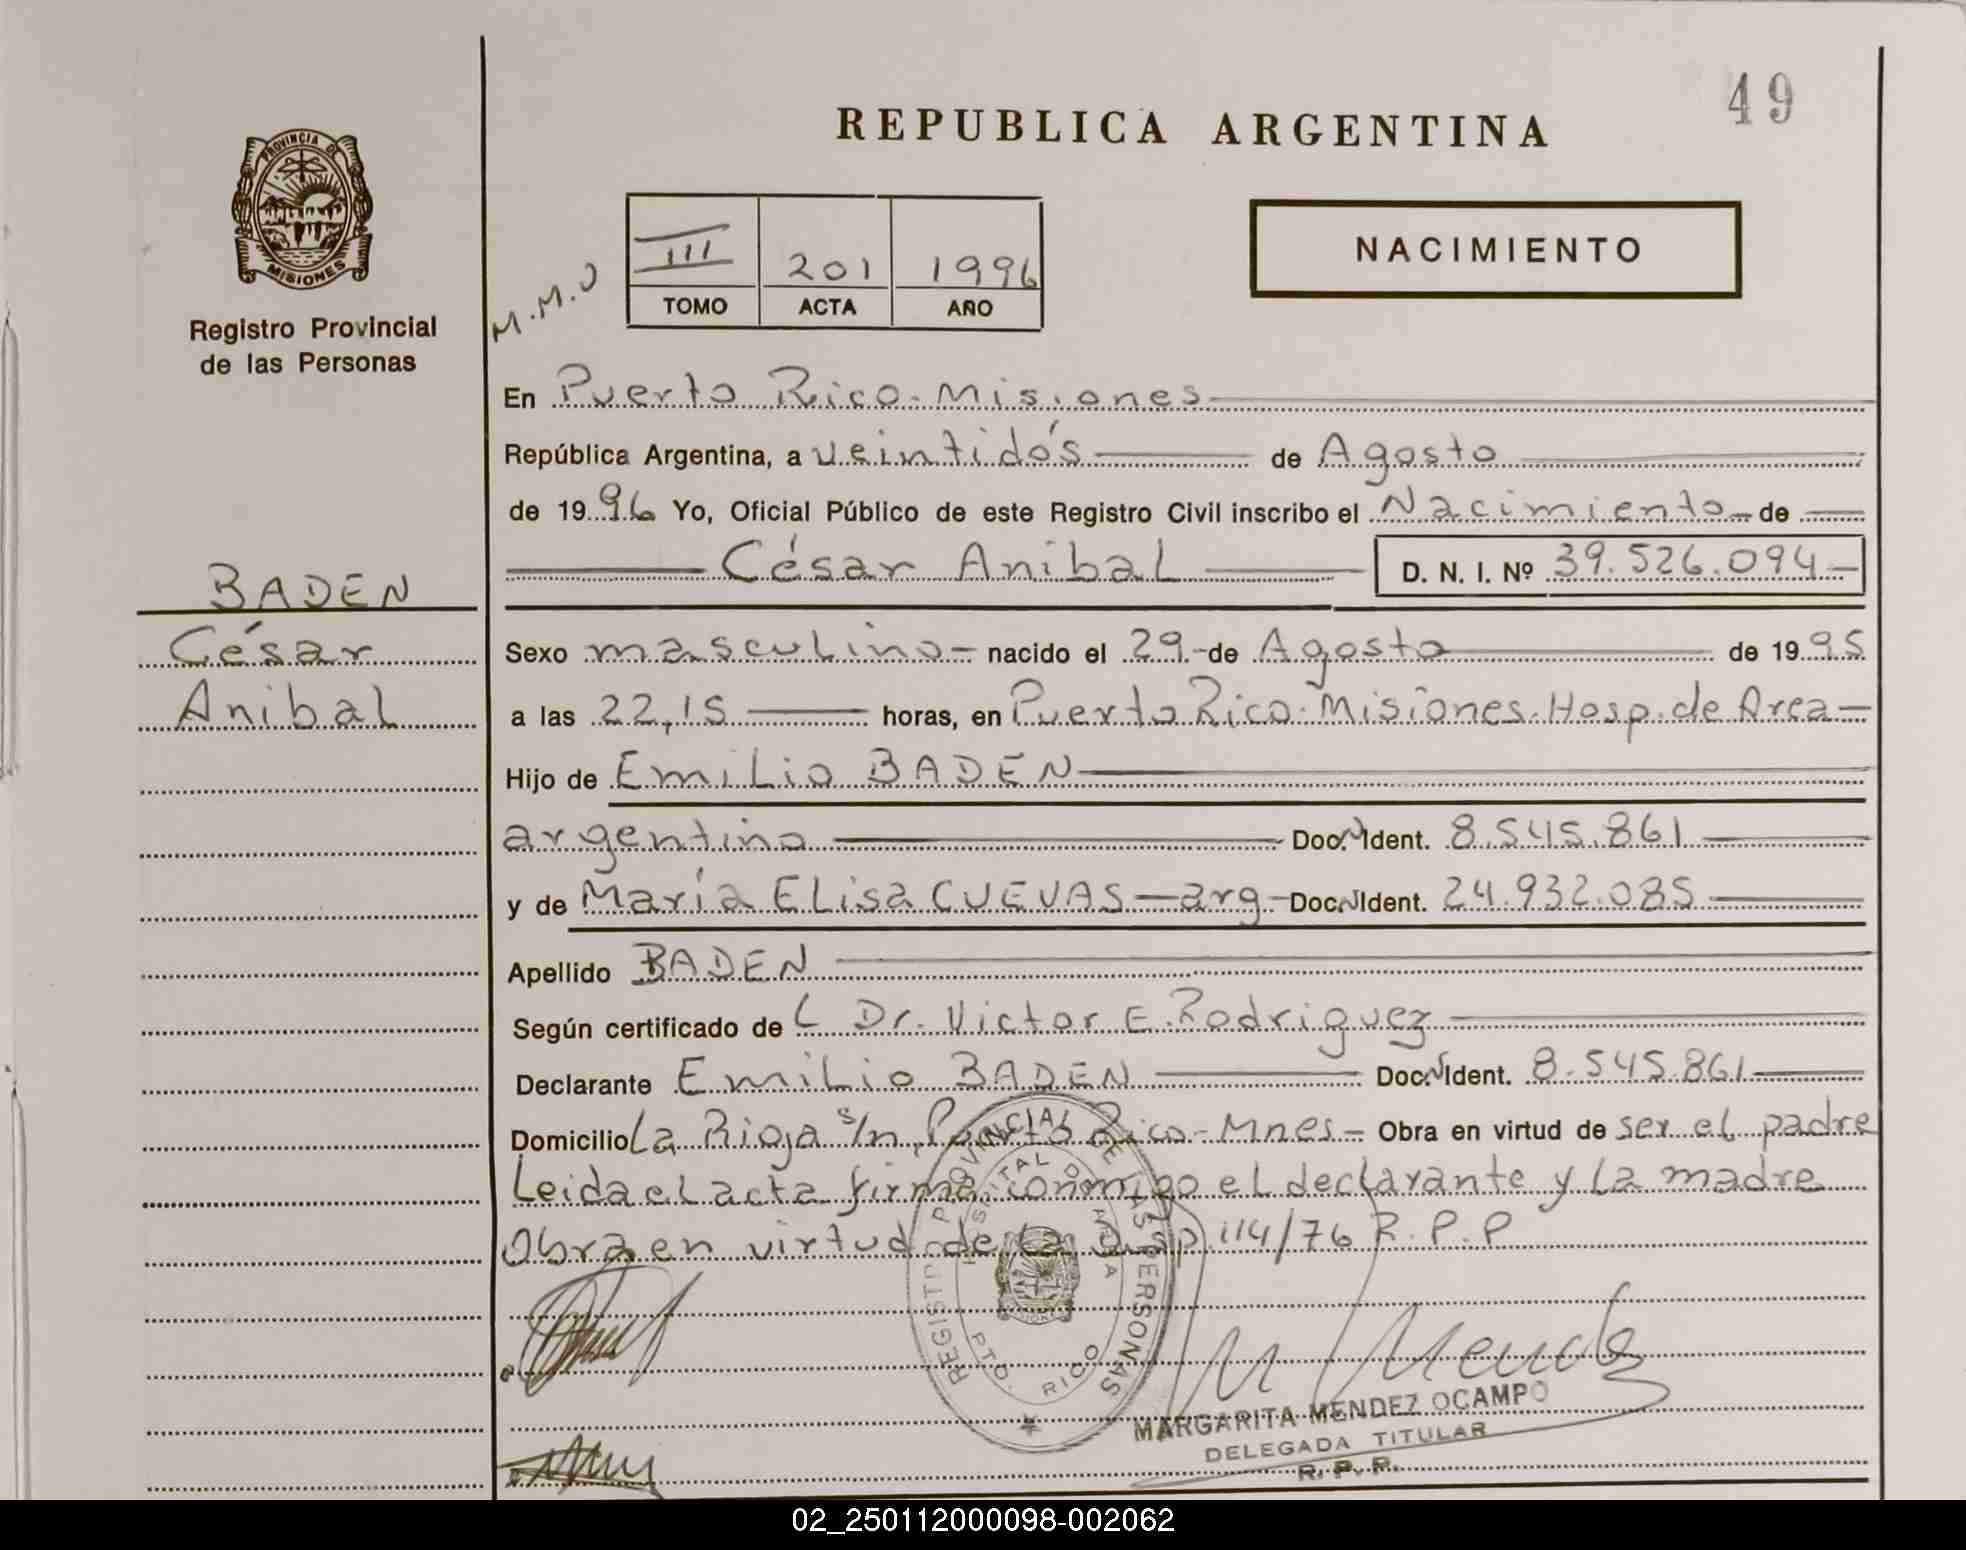 49
REPUBLICA ARGENTINA
PROVINCIA DE
MISIONES
Registro Provincial
de las Personas
M.M.O
III 201 1996
TOMO ACTA AÑO
NACIMIENTO
En Puerto Rico - Misiones
República Argentina, a veintidós de Agosto
de 1996 Yo, Oficial Público de este Registro Civil inscribo el Nacimiento de
César Anibal D. N. I. Nº 39.526.094
BADEN
César
Anibal
Sexo masculino nacido el 29 de Agosto de 1995
a las 22,15 horas, en Puerto Rico. Misiones. Hosp. de Area
Hijo de Emilio BADEN
argentino Doc. N Ident. 8.545.861
y de María ELisa CUEVAS - arg - Doc. N Ident. 24.932.085
Apellido BADEN
Según certificado de L Dr. Victor E. Rodriguez
Declarante Emilio BADEN Doc. N Ident. 8.545.861
Domicilio La Rioja s/n, Puerto Rico - Mnes - Obra en virtud de ser el padre
Leida el acta firma conmigo el declarante y la madre
Obra en virtud de la Disp. 114/76 R.P.P
REGISTRO PROVINCIAL DE LAS PERSONAS
HOSPITAL DE AREA
PTO. RICO
M Mendez
MARGARITA MENDEZ OCAMPO
DELEGADA TITULAR
R. P. P.
02_250112000098-002062